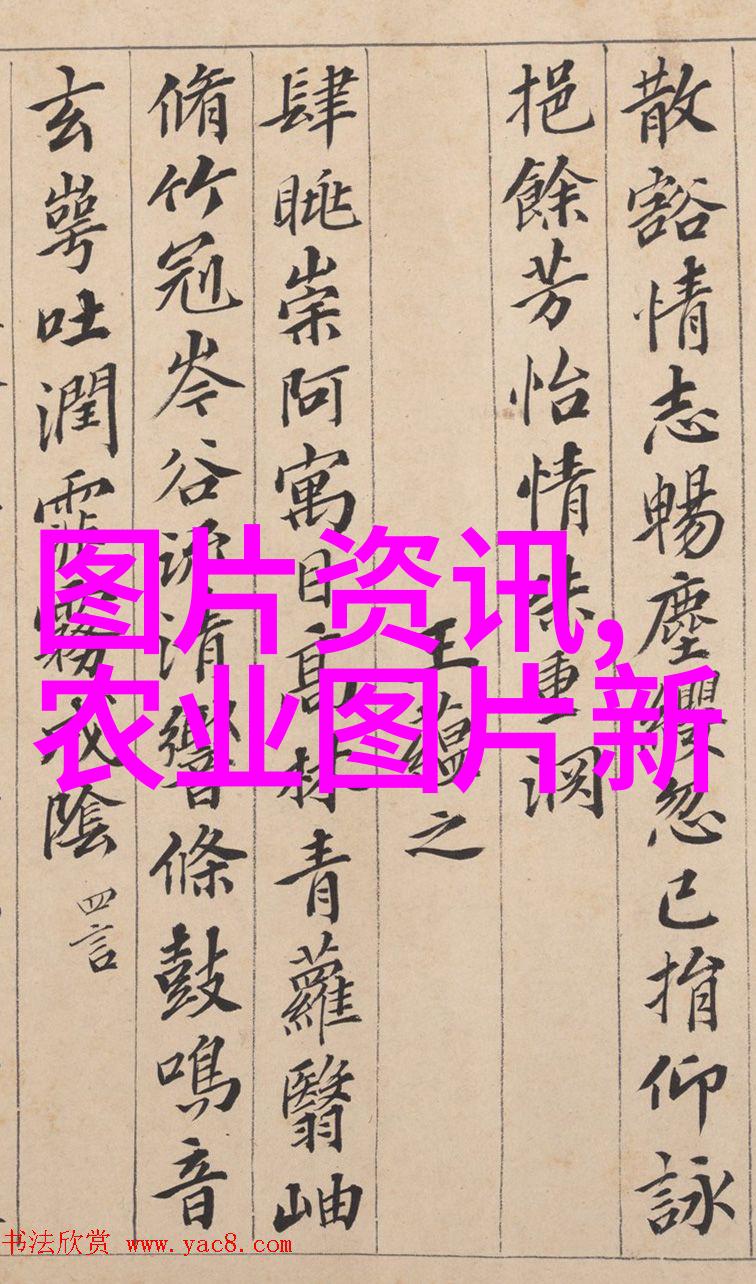 散豁情志暢塵纓忽已捐仰詠
挹餘芳怡情味重淵
王蘊之
肆眺崇阿寓目高林青蘿翳岫
脩竹冠岑谷流清響條鼓鳴音
玄崿吐潤霏霧成陰 四言
图片资讯,
农业图片新
书法欣赏 www.yac8.com